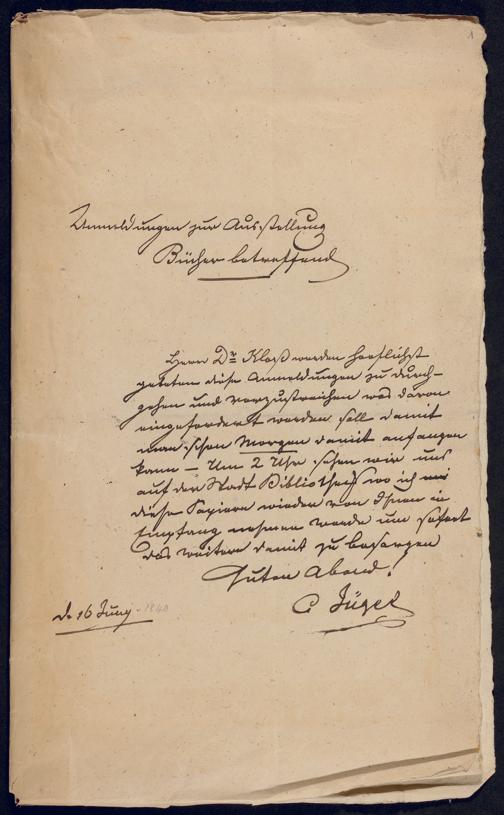 1
Anmeldungen zur Ausstellung
Bücher betreffend
Herrn Dr Kloß werden höflichst
gebeten diese Anmeldungen zu durch-
gehen und vorzustreichen was davon
eingefordert werden soll damit
man schon Morgen damit anfangen
kann – Um 2 Uhr sehen wir uns
auf der Stadt Bibliothek wo ich
diese Papiere wieder von Ihnen in
Empfang nehmen werde um sofort
das weitere damit zu besorgen
Guten Abend!
C Jügel
d. 16 Juny - 1840